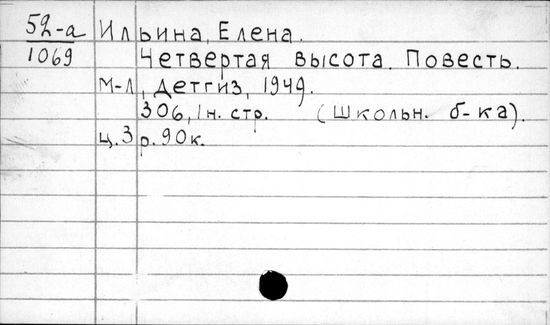 52-а Ильина, Елена.
1069 Четвертая высота. Повесть.
М-Л, Детгиз, 1949.
306, 1 н. стр. (Школьн. б-ка).
Ц. 3 р. 90 к.